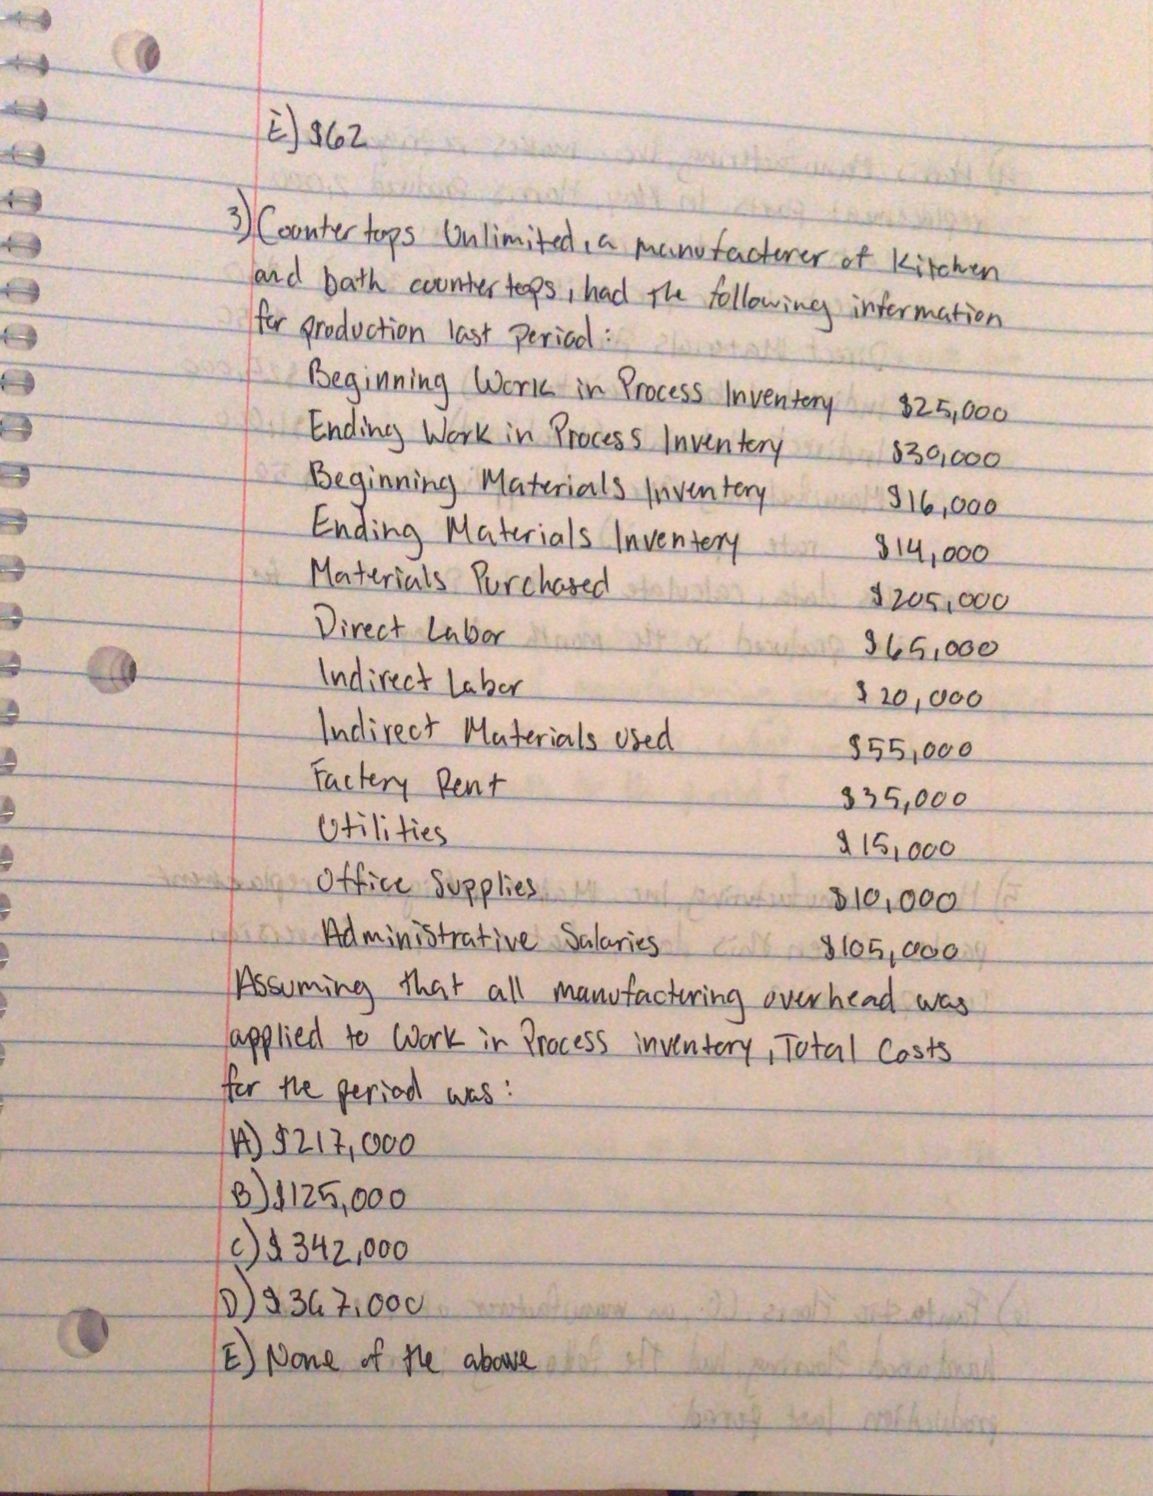 E) $62
3) Counter tops Unlimited, a manufacterer of Kitchen
and bath counter tops, had the following information
for production last period:
Beginning Work in Process Inventory $25,000
Ending Work in Process Inventory $30,000
Beginning Materials Inventory $16,000
Ending Materials Inventory $14,000
Materials Purchased $205,000
Direct Labor $65,000
Indirect Labor $20,000
Indirect Materials Used $55,000
Factory Rent $35,000
Utilities $15,000
Office Supplies $10,000
Administrative Salaries $105,000
Assuming that all manufactering overhead was
applied to Work in Process inventory, Total Costs
for the period was:
A) $217,000
B) $125,000
C) $342,000
D) $367,000
E) None of the above